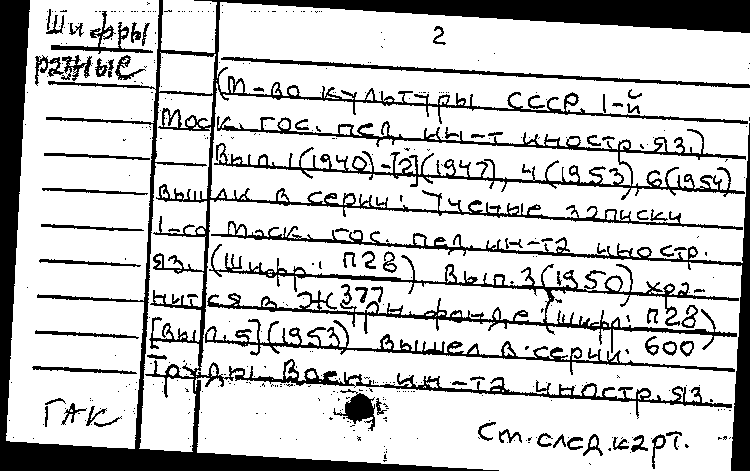 Шифры
разные
2
(М-во культуры СССР. I-й
Моск. гос. пед. ин-т иностр. яз.)
Вып. 1 (1940)-[2] (1947), 4 (1953), 6 (1954)
вышли в серии: Ученые записки
I-го Моск. гос. пед. ин-та иностр.
яз. (Шифр: П28
377). Вып. 3 (1950) хра-
нится в Журн. фонде (шифр: П28
600)
[Вып. 5] (1953) вышел в серии:
Труды Воен. ин-та иностр. яз.
ГАК
См. след. карт.